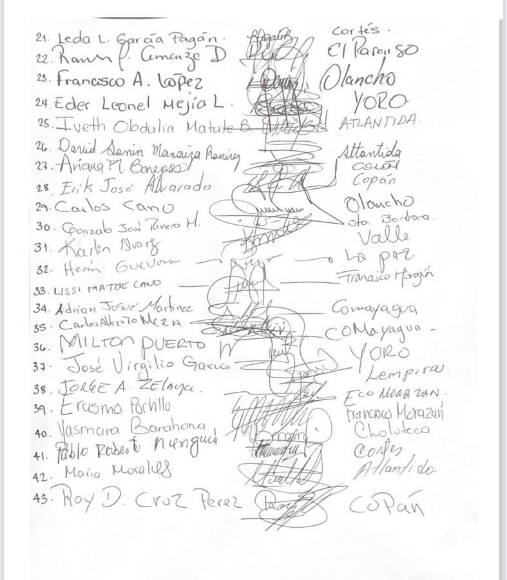 21. Leda L. García Pagán. Cortés.
22. Ramn P. D El Paraiso
23. Francisco A. López Olancho
24 Eder Leonel Mejía L. YORO
25. Iveth Obdulia Matute B. ATLANTIDA.
26. David Danin Ramirez Atlantida
27. Ariana M Banegas
28. Erik José Alvarado Copán
29. Carlos Cano Olancho
30. Gonzalo José Rivera M. Sta. Barbara.
31. Karlin Valle
32. Herim Guevara La paz
33. LISSI MATUTE CANO Francisco Morazán
34. Adrian Josué Martinez Comayagua
35. Carlos Alberto Mezia COMayagua -
36. MILTON PUERTO YORO
37. José Virgilio Garcia Lempira.
38. JORGE A. ZElaya. Fco MORAZAN.
39. Erasmo Portillo Francisco Morazán
40. Yasmara Barahona Choluteca
41. Pablo Roberto Cortes
42. Mario Morales Atlantida.
43. Roy D. Cruz Perez Copán